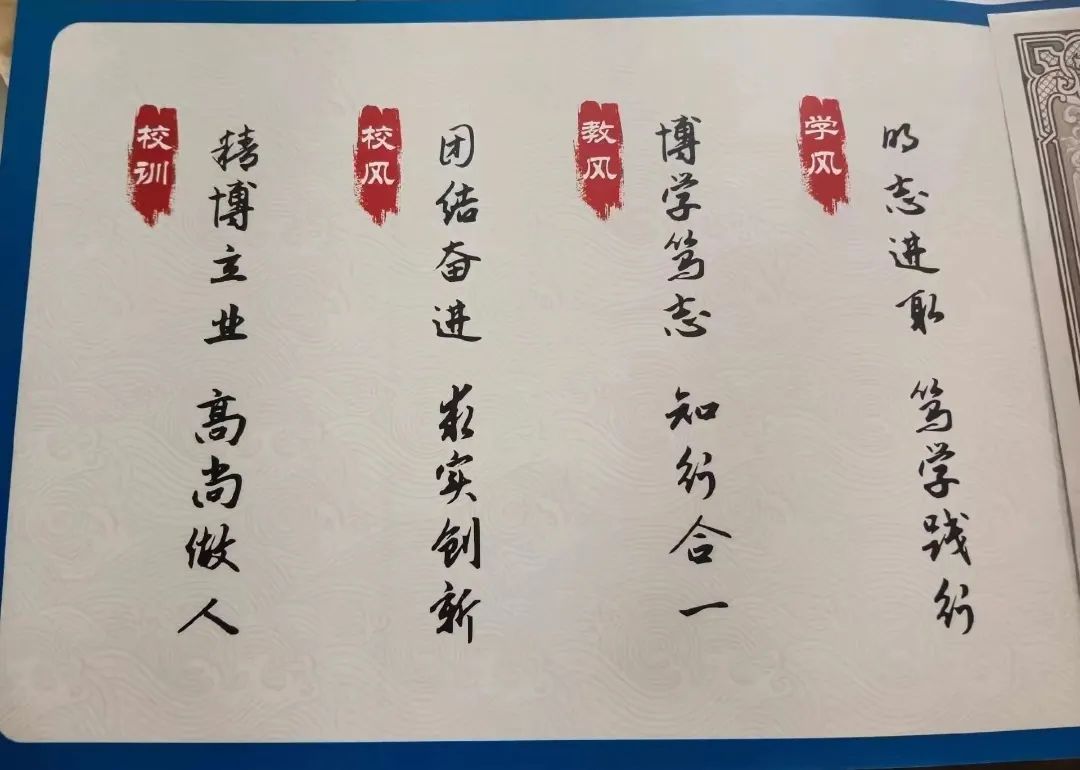 校训
精博立业 高尚做人
校风
团结奋进 求实创新
教风
博学笃志 知行合一
学风
明志进取 笃学践行